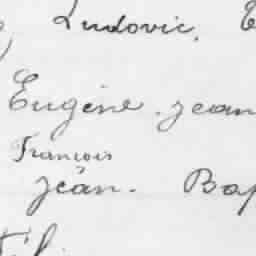 Ludovic,
Eugène. jean
François
jean. Bap